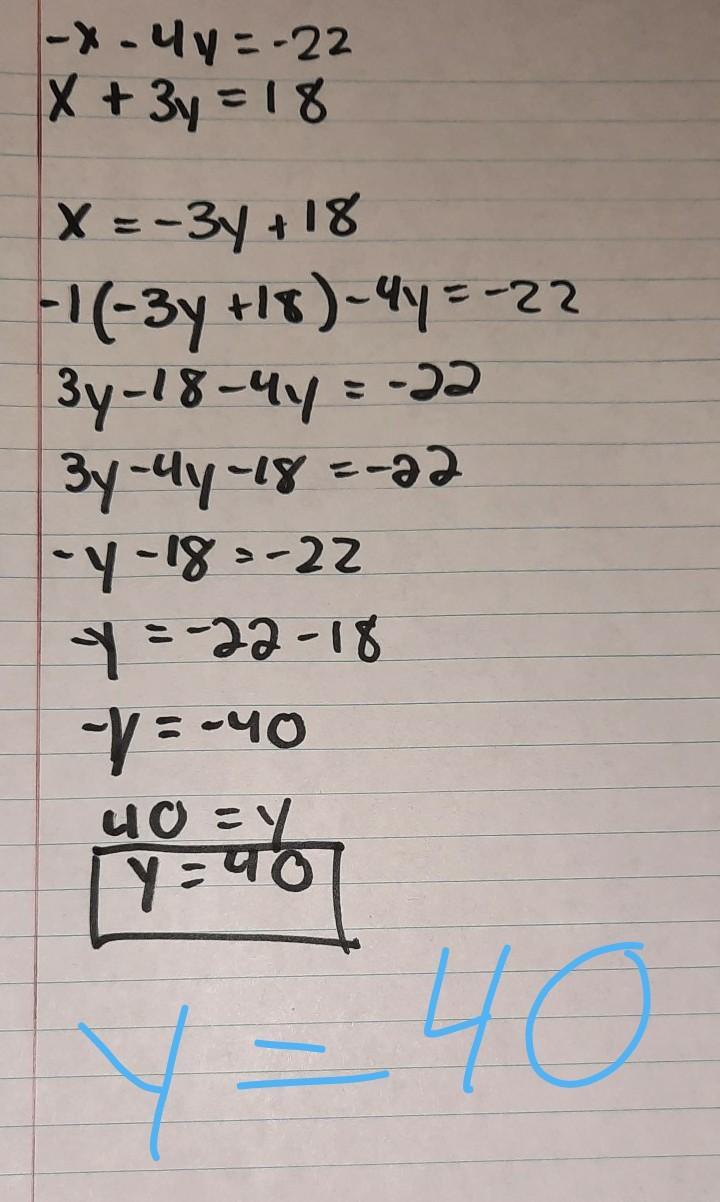 -x - 4y = -22
x + 3y = 18
x = -3y + 18
-1(-3y + 18) - 4y = -22
3y - 18 - 4y = -22
3y - 4y - 18 = -22
-y - 18 = -22
-y = -22 - 18
-y = -40
40 = y
y = 40
y = 40